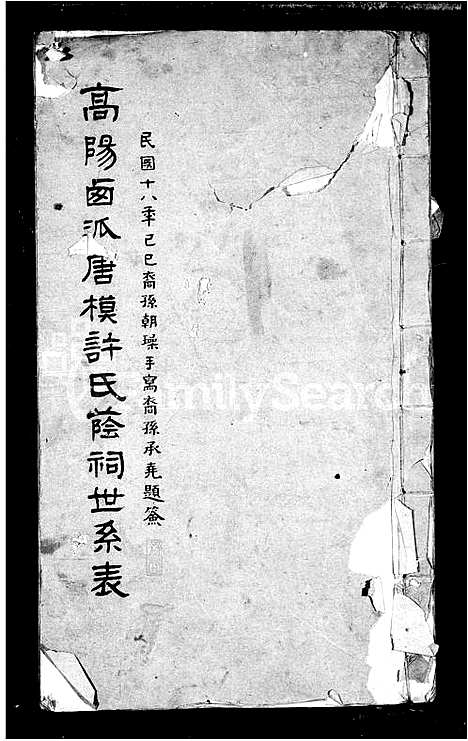 民國十八年己巳裔孫朝璪手寫裔孫承堯題簽
高陽卥派唐模許氏蔭祠世系表
FamilySearch